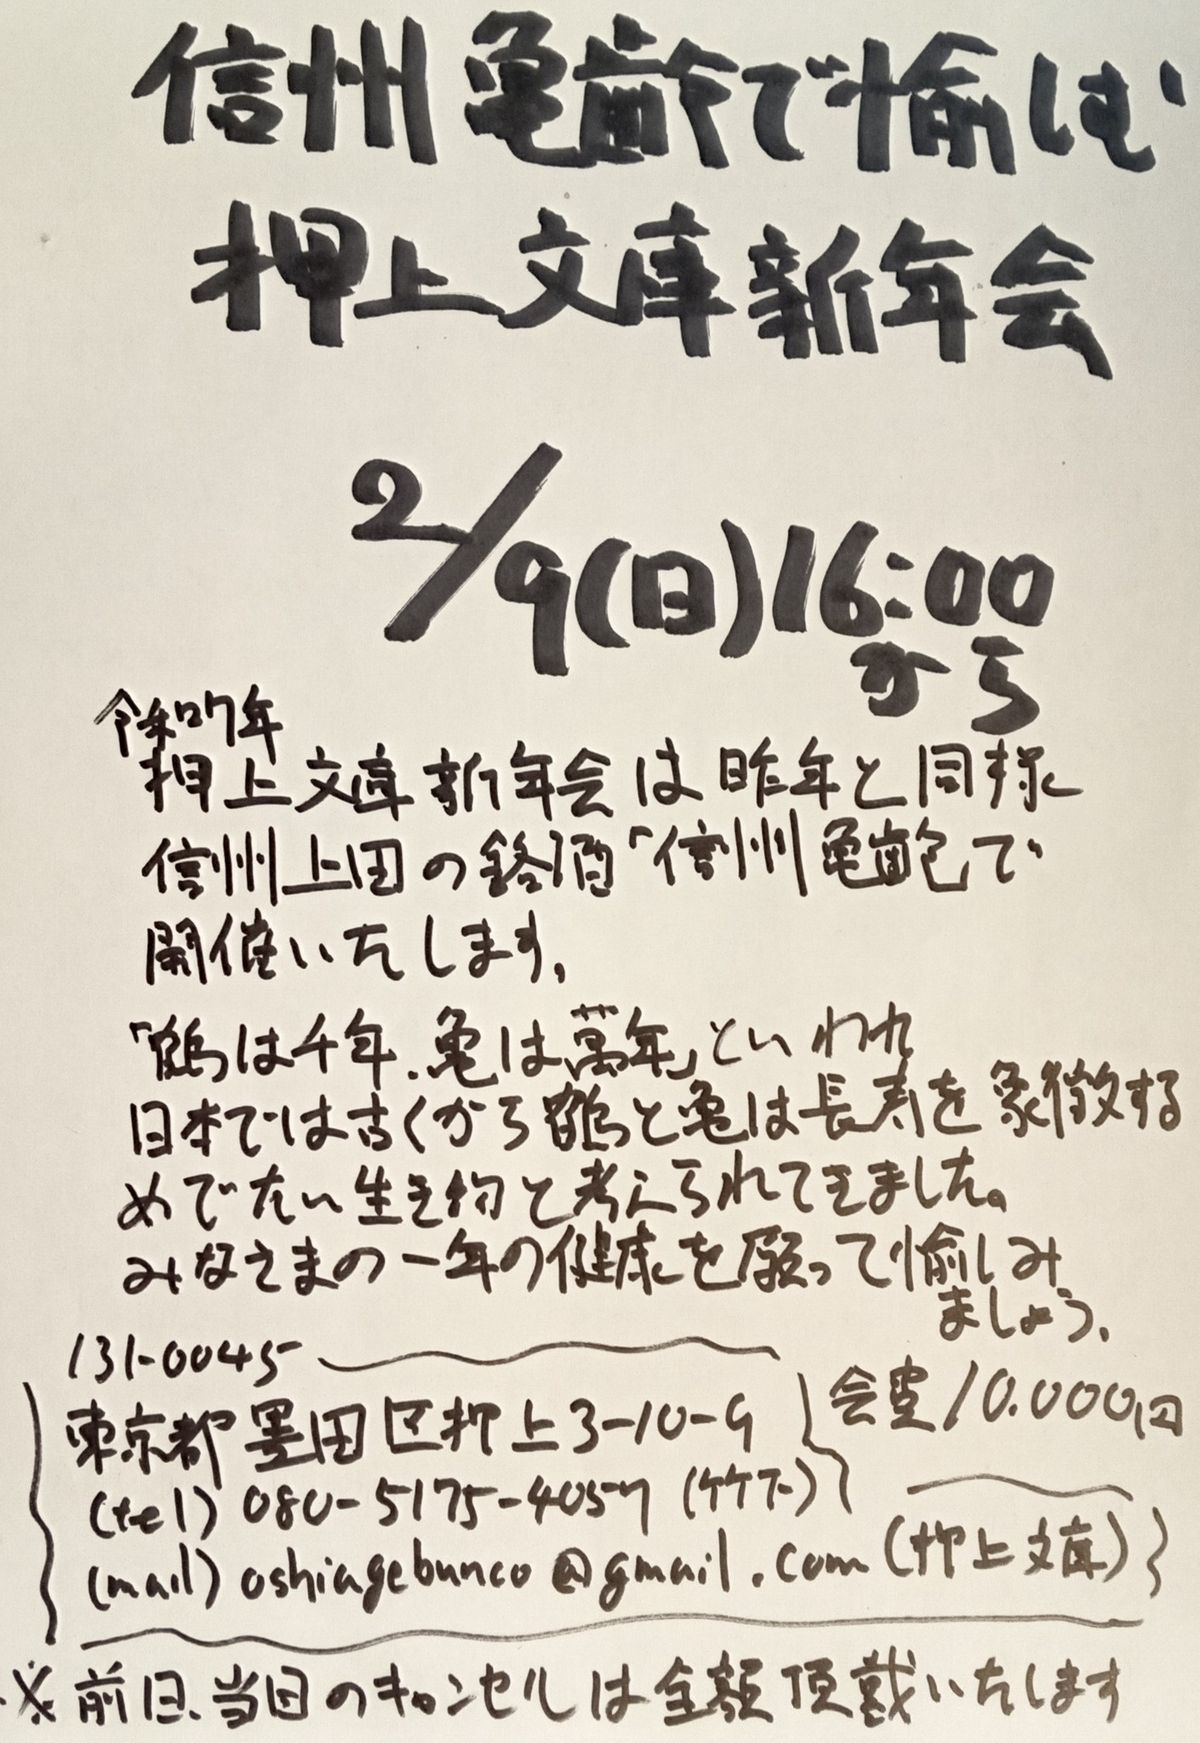 信州亀齢で愉しむ
押上文庫新年会
2/9(日)16:00
から
令和7年
押上文庫新年会は昨年と同様
信州上田の銘酒「信州亀齢で
開催いたします。
「鶴は千年、亀は萬年」といわれ
日本では古くから鶴と亀は長寿を象徴する
めでたい生き物と考えられてきました。
みなさまの一年の健康を願って愉しみ
ましょう。
131-0045
東京都墨田区押上3-10-9
会費10.000円
(tel) 080-5175-4057 (竹下)
(mail) oshiagebunco@gmail.com (押上文庫)
※前日、当日のキャンセルは全額頂戴いたします